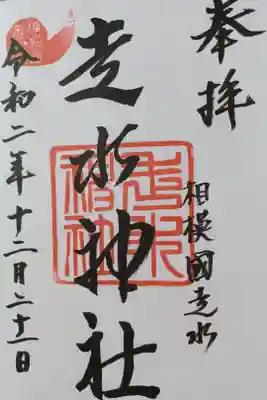 奉拝
相模國走水
走水神社
令和二年十二月二十一日